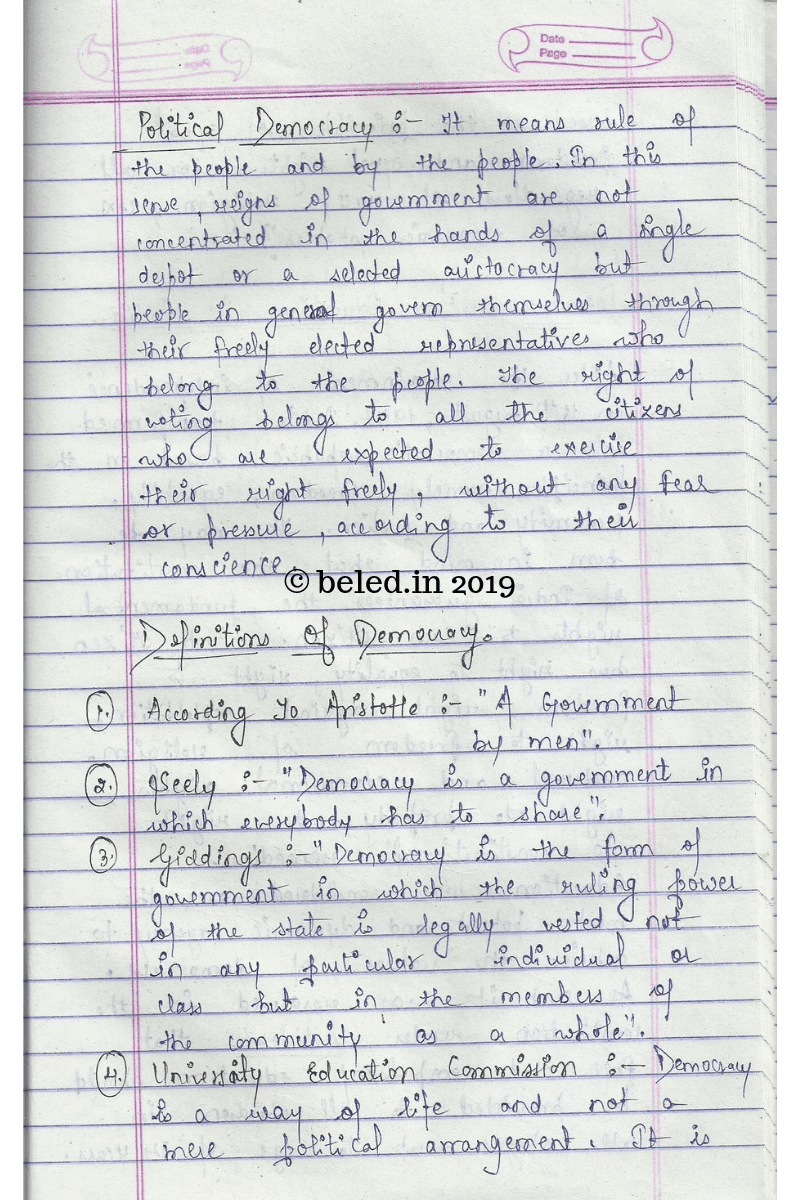 Date
Page
Political Democracy :- It means rule of
the people and by the people. In this
sense, reigns of government are not
concentrated in the hands of a single
despot or a selected aristocracy but
people in general govern themselves through
their freely elected representatives who
belong to the people. The right of
voting belongs to all the citizens
who are expected to exercise
their right freely, without any fear
or pressure, according to their
conscience.
© beled.in 2019
Definitions Of Democracy.
1. According To Aristotle :- "A Government
by men".
2. Seely :- "Democracy is a government in
which everybody has to share".
3. Giddings :- "Democracy is the form of
government in which the ruling power
of the state is legally vested not
in any particular individual or
class but in the members of
the community as a whole".
4. University Education Commission :- Democracy
is a way of life and not a
mere political arrangement. It is